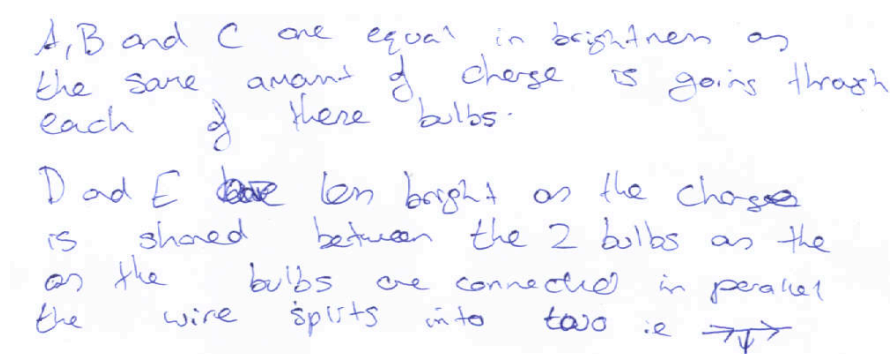 A, B and C are equal in brightness as
the same amount of charge is going through
each of these bulbs.
D and E are less bright as the charge
is shared between the 2 bulbs as the
as the bulbs are connected in parallel
the wire splits into two ie